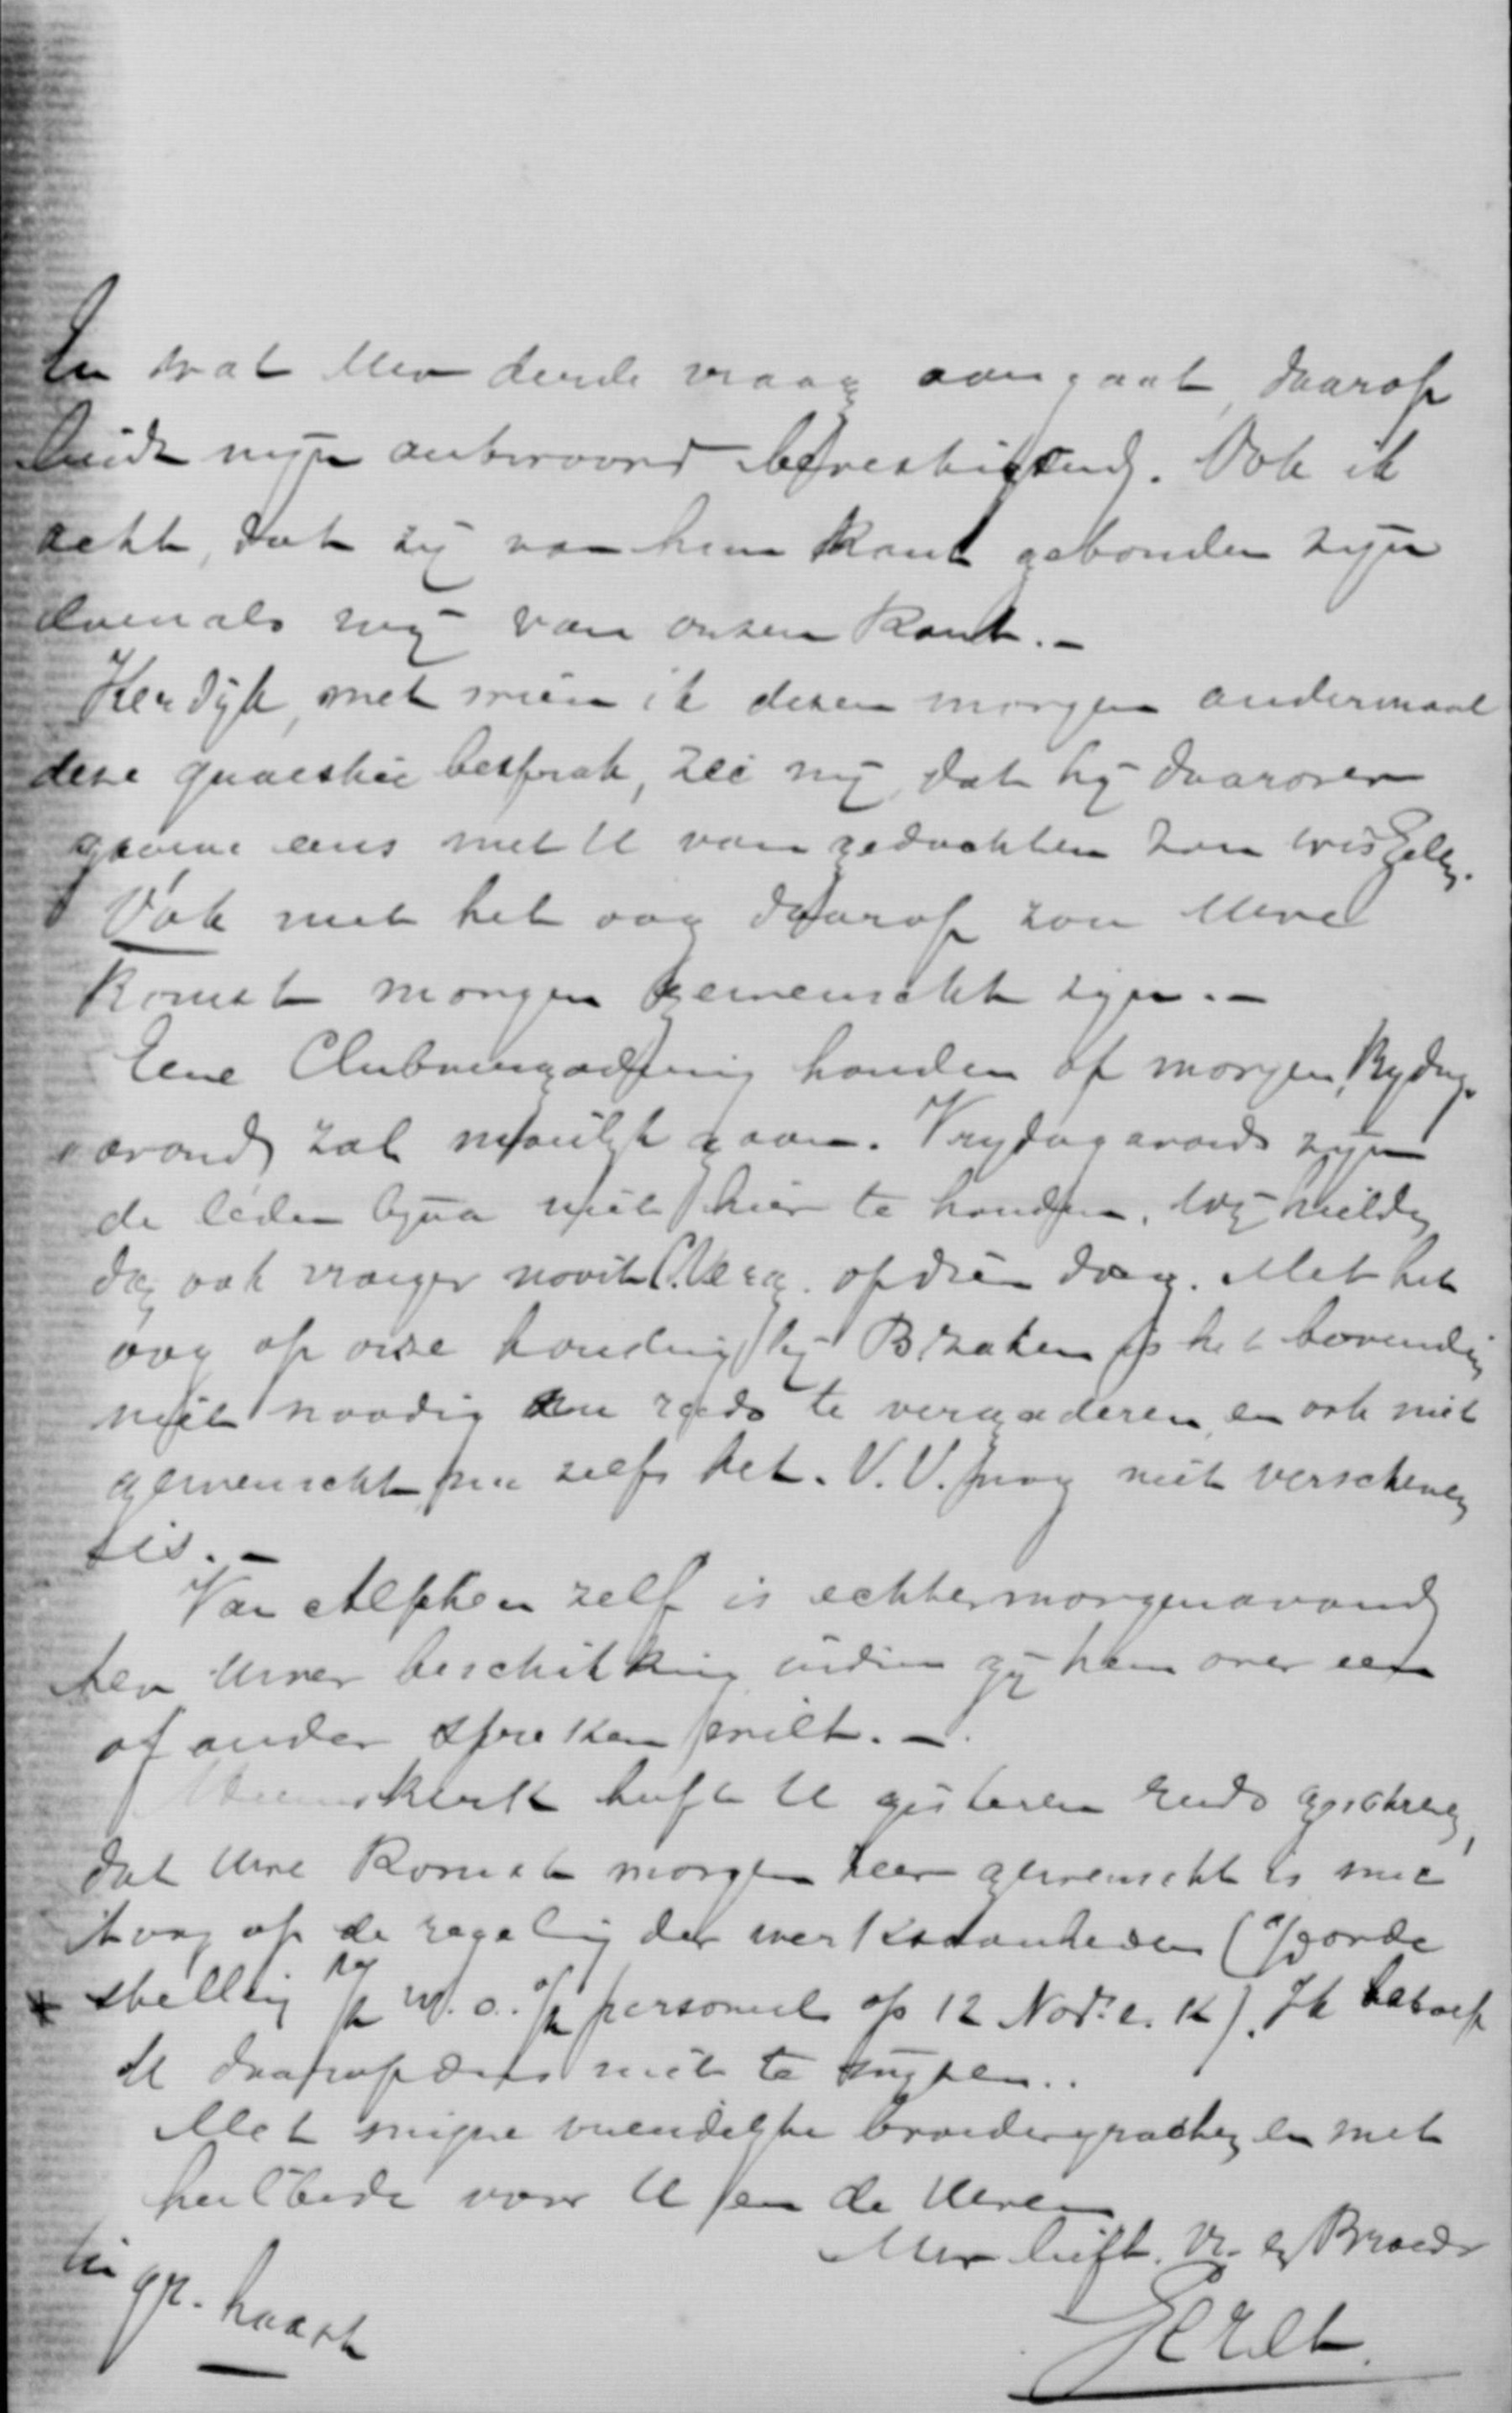 En wat Uw derde vraag aangaat, daarop
luidt mijn antwoord bevestigend. Ook ik
acht, dat zij van hun kant gebonden zijn
evenals wij van onzen kant. -
Kerdijk, met wien ik dezen morgen andermaal
deze quaestie besprak, zei mij, dat hij daarover
gaarne eens met U van gedachten zou wisselen.
Ook met het oog daarop zou Uwe
komst morgen gewenscht zijn. -
Eene Clubvergadering houden op morgen, Vrydag-
avond zal moeilijk gaan. Vrijdagavonds zijn
de leden bijna niet hier te houden. Wij hielden
dan ook vroeger nooit C. Verg. op dien dag. Met het
oog op onze houding bij B. zaken is het bovendien
niet noodig nu reeds te vergaderen, en ook niet
gewenscht nu zelfs het V. V. nog niet verschenen
is. -
Van Alphen zelf is echter morgenavond
ter Uwer beschikking indien gij hem over een
of ander spreken wilt. -
Heemskerk heeft U gisteren reeds geschreven,
dat Uwe komst morgen zeer gewenscht is met
't oog op de regeling der werkzaamheden (o/d orde
stelling w. o. personeel op 12 Nov. e. k.). Ik behoef
U daarop dus niet te wijzen..
Met mijne vriendelijke broedergroeten en met
heilbede voor U en de Uwen
Uw liefh. vr. en Broeder
In gr. haast